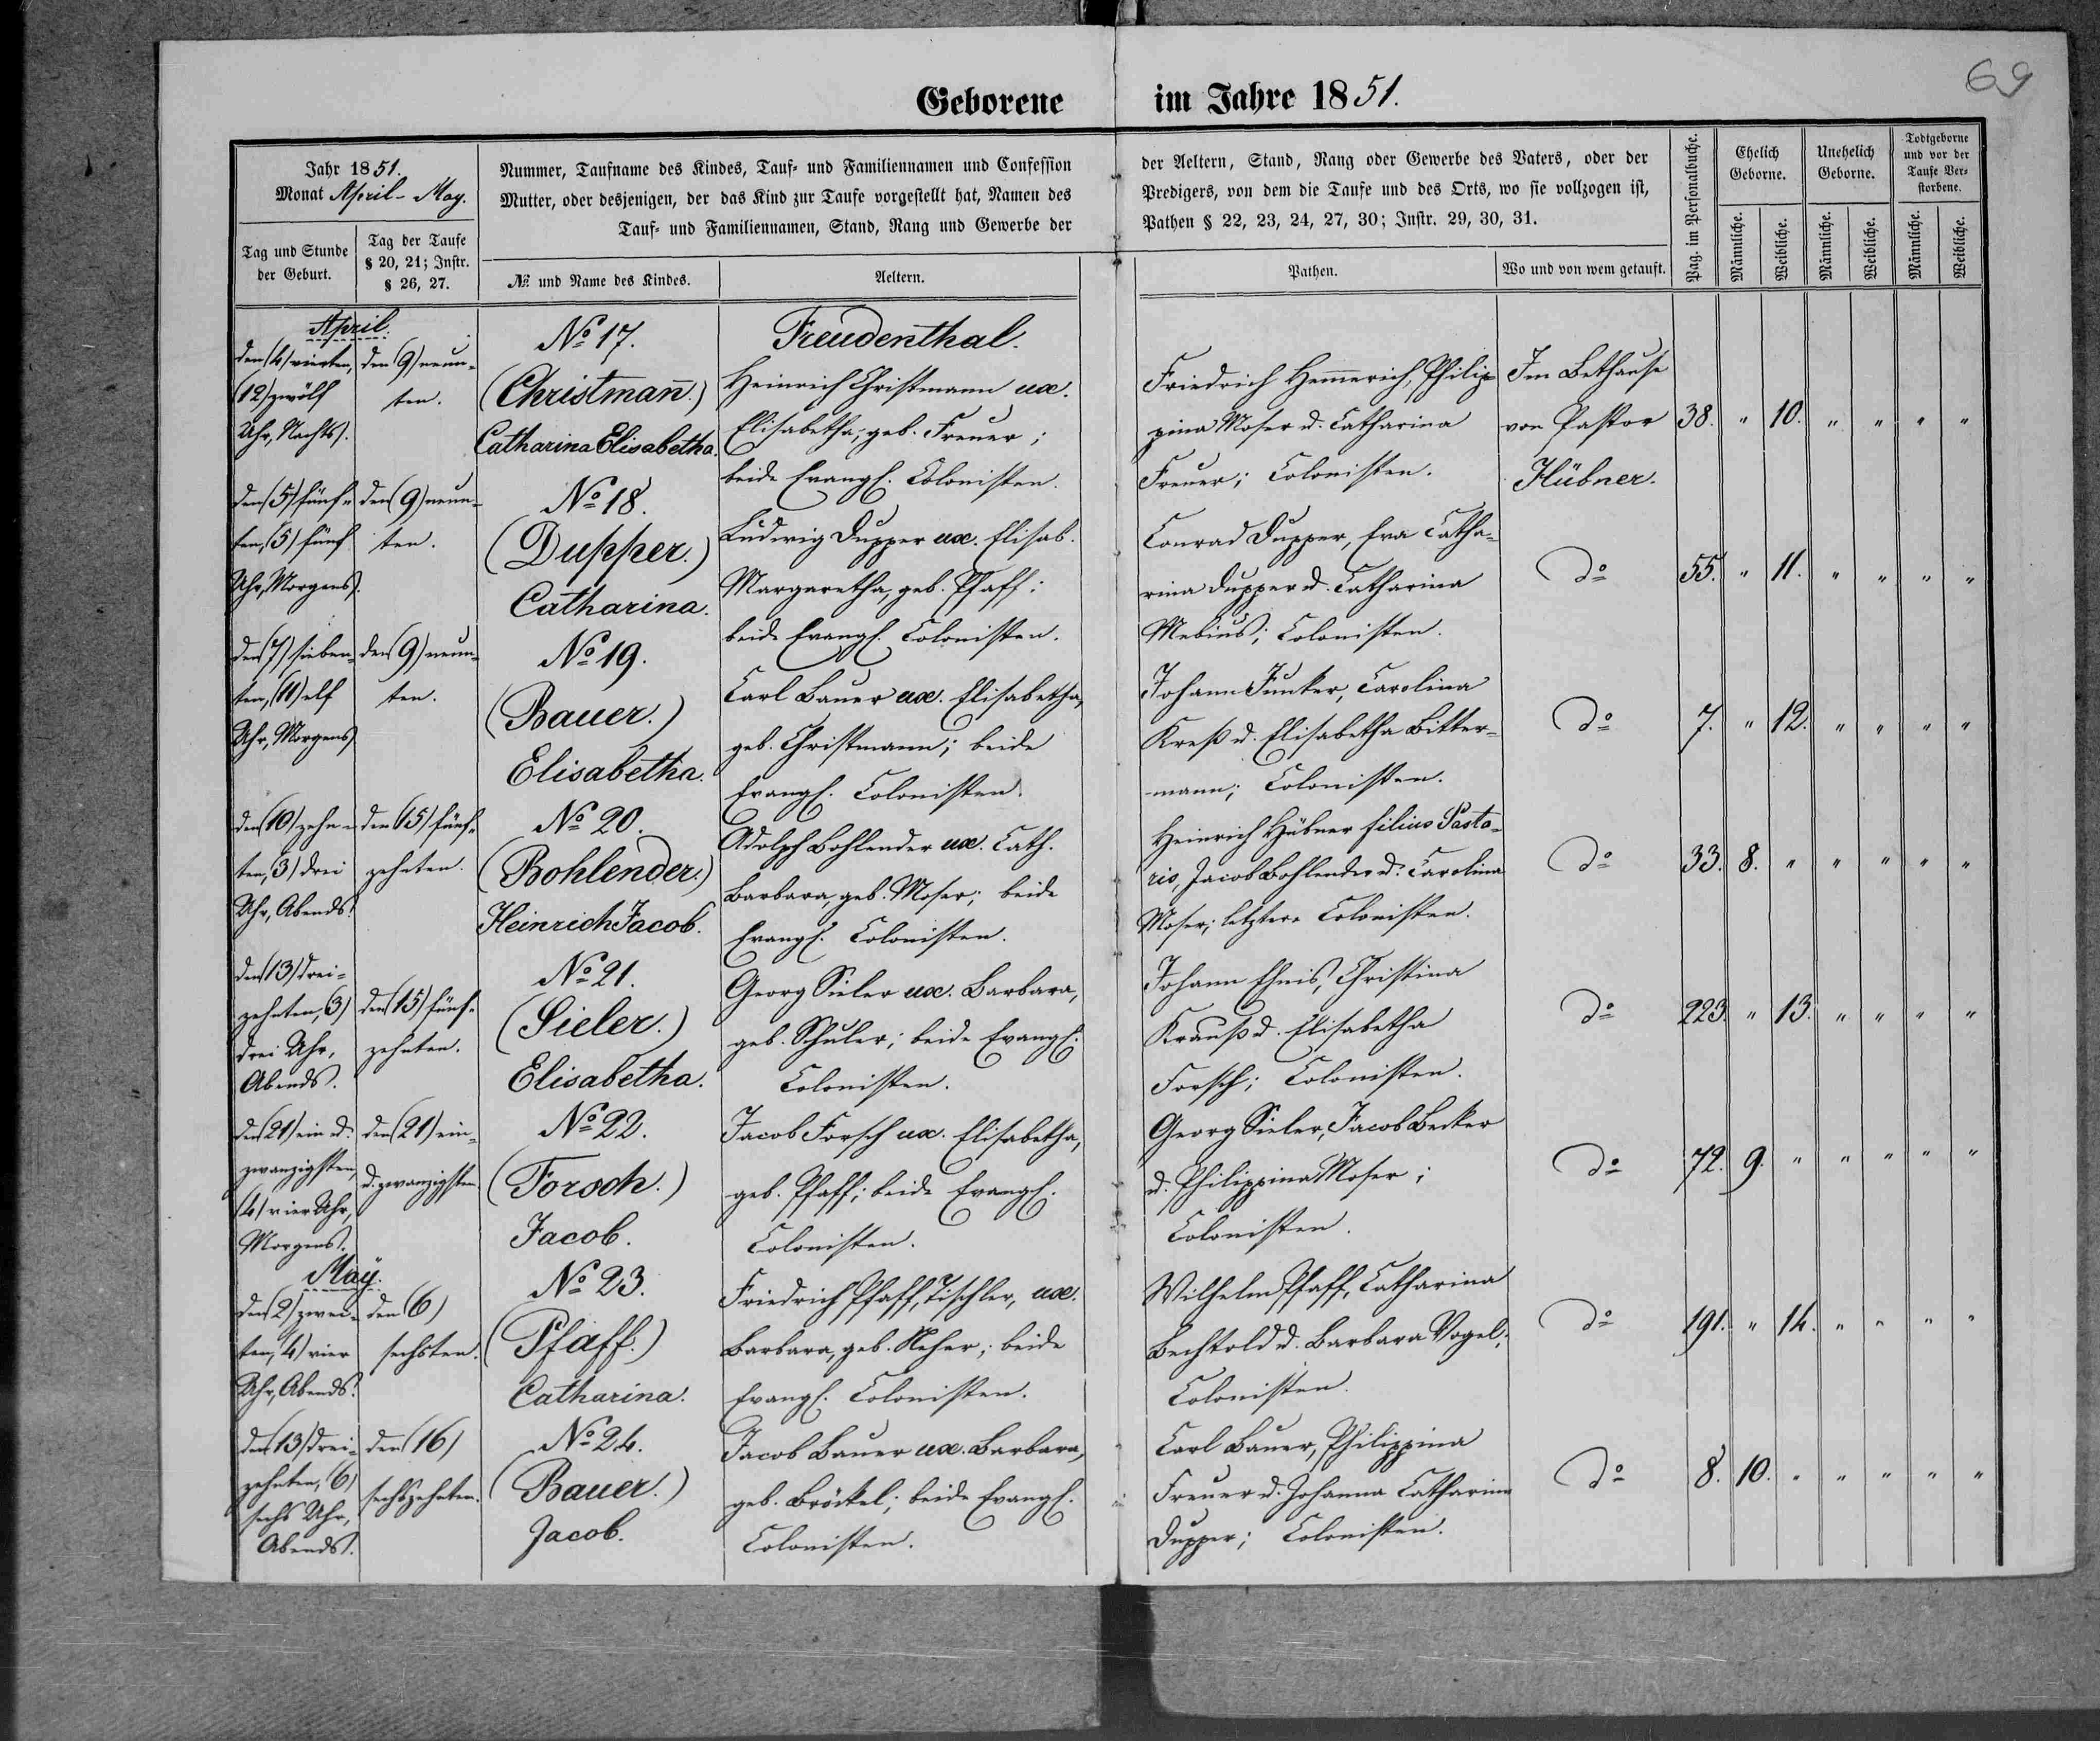 69
Geborene im Jahre 1851.
Jahr 1851.
Monat April - May.
Tag und Stunde der Geburt.
Tag der Taufe § 20, 21; Instr. § 26, 27.
Nummer, Taufname des Kindes, Tauf- und Familiennamen und Confession
Mutter, oder desjenigen, der das Kind zur Taufe vorgestellt hat, Namen des
Tauf- und Familiennamen, Stand, Rang und Gewerbe der
№ und Name des Kindes.
Aeltern.
der Aeltern, Stand, Rang oder Gewerbe des Vaters, oder der
Predigers, von dem die Taufe und des Orts, wo sie vollzogen ist,
Pathen § 22, 23, 24, 27, 30; Instr. 29, 30, 31.
Pathen.
Wo und von wem getauft.
Pag. im Personalbuche.
Ehelich Geborne.
Unehelich Geborne.
Todtgeborne und vor der Taufe Verstorbene.
Männliche.
Weibliche.
Männliche.
Weibliche.
Männliche.
Weibliche.
April.
den (4) vierten,
(12) zwölf
Uhr, Nachts.
den (9) neun-
ten.
No 17.
(Christmañ.)
Catharina Elisabetha.
Freudenthal.
Heinrich Christmann ux.
Elisabetha, geb. Freuer;
beide Evangl. Colonisten.
Friedrich Hem̃erich, Philip-
pina Moser u. Catharina
Freuer; Colonisten.
Im Bethause
von Pastor
Hübner.
38. " 10. " " " "
den (5) fünf-
ten, (5) fünf
Uhr, Morgens.
den (9) neun-
ten.
No 18.
(Dupper.)
Catharina.
Ludwig Dupper ux. Elisab.
Margaretha, geb. Pfaff;
beide Evangl. Colonisten.
Conrad Dupper, Eva Catha-
rina Dupper u. Catharina
Mebius; Colonisten.
do
55. " 11. " " " "
den (7) sieben-
ten, (11) elf
Uhr, Morgens
den (9) neun-
ten.
No 19.
(Bauer.)
Elisabetha.
Carl Bauer ux. Elisabetha,
geb. Christmann; beide
Evangl. Colonisten.
Johann Junker, Carolina
Kreß u. Elisabetha Bitter-
mann; Colonisten.
do
7. " 12. " " " "
den (10) zehn-
ten, (3) drei
Uhr, Abends.
den (15) fünf-
zehnten.
No 20.
(Bohlender.)
Heinrich Jacob.
Adolph Bohlender ux. Cath.
Barbara, geb. Moser; beide
Evangl. Colonisten.
Heinrich Hübner filius Pasto-
ris, Jacob Bohlender u. Carolina
Moser; letztere Colonisten.
do
33. 8. " " " " "
den (13) drei-
zehnten, (3)
drei Uhr,
Abends.
den (15) fünf-
zehnten.
No 21.
(Sieler.)
Elisabetha.
Georg Sieler ux. Barbara,
geb. Schuler; beide Evangl.
Colonisten.
Johann Ehnis, Christina
Krauß u. Elisabetha
Forsch; Colonisten.
do
223. " 13. " " " "
den (21) ein u.
zwanzigsten,
(4) vier Uhr,
Morgens.
den (21) ein-
u. zwanzigsten.
No 22.
(Forsch.)
Jacob.
Jacob Forsch ux. Elisabetha,
geb. Pfaff; beide Evangl.
Colonisten.
Georg Sieler, Jacob Becker
u. Philippina Moser;
Colonisten.
do
72. 9. " " " " "
Maÿ.
den (2) zwei-
ten, (4) vier
Uhr, Abends.
den (6)
sechsten.
No 23.
(Pfaff.)
Catharina.
Friedrich Pfaff, Tischler, ux.
Barbara, geb. Neher; beide
Evangl. Colonisten.
Wilhelm Pfaff, Catharina
Bechtold u. Barbara Vogel;
Colonisten.
do
191. " 14. " " " "
den (13) drei-
zehnten, (6)
sechs Uhr,
Abends.
den (16)
sechszehnten.
No 24.
(Bauer.)
Jacob.
Jacob Bauer ux. Barbara,
geb. Bröckel; beide Evangl.
Colonisten.
Carl Bauer, Philippina
Freuer u. Johanna Catharina
Dupper; Colonisten.
do
8. 10. " " " " "